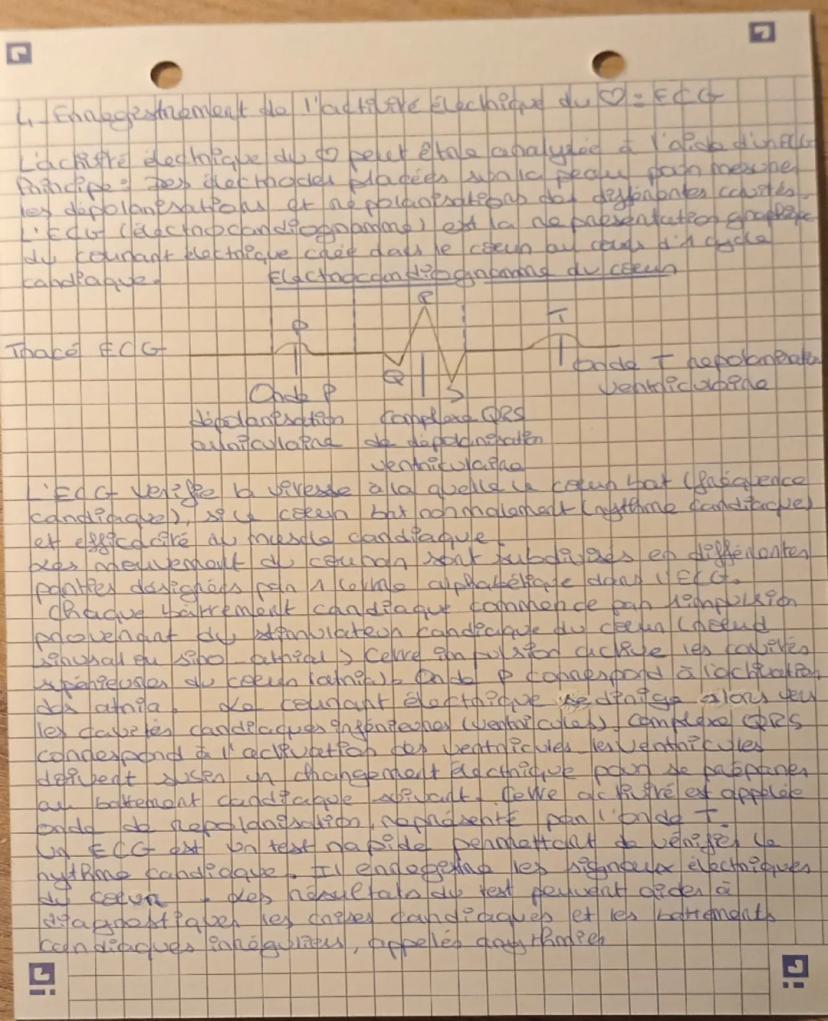 4. Enregistrement de l'activité électrique du ♡ = ECG
L'activité électrique du ♡ peut être analysée à l'aide d'un ECG
Principe : Des électrodes placées sur la peau pour mesurer
les dépolarisations et repolarisations des différentes cavités.
L'ECG (électrocardiogramme) est la représentation graphique
du courant électrique créé dans le coeur au cours d'1 cycle
cardiaque.
Electrocardiogramme du coeur
R
P
T
Tracé ECG
Q
S
Onde T repolarisation
ventriculaire
Onde P
dépolarisation
auriculaire
Complexe QRS
de dépolarisation
ventriculaire
L'ECG vérifie la vitesse à la quelle le coeur bat (fréquence
cardiaque), si le coeur bat normalement (rythme cardiaque)
et efficacité du muscle cardiaque.
Les mouvement du sont subdivisés en différentes
parties désignées par 1 alphabétique dans l'ECG.
Chaque battement cardiaque commence par l'impulsion
provenant du stimulateur cardiaque du coeur (noeud
sinusal ou sino atrial). Cette impulsion active les cavités
supérieures du coeur (atria). Onde P correspond à l'activation
des atria. Le courant électrique se dirige alors vers
les cavités cardiaques inférieures (ventricules). Complexe QRS
correspond à l'activation des ventricules. Les ventricules
doivent subir un changement électrique pour se préparer
au battement cardiaque suivant. Cette activité est appelée
onde de repolarisation, représenté par l'onde T.
Un ECG est un test rapide permettant de vérifier le
rythme cardiaque. Il enregistre les signaux électriques
du coeur. Les résultats du test peuvent aider à
diagnostiquer les crises cardiaques et les battements
cardiaques irréguliers, appelés arythmies